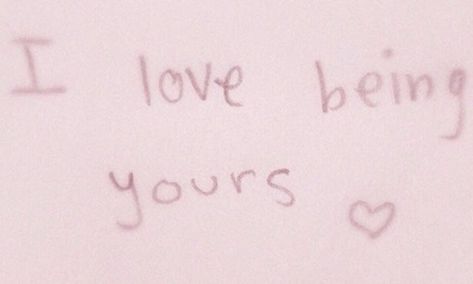 I love being
yours ♡